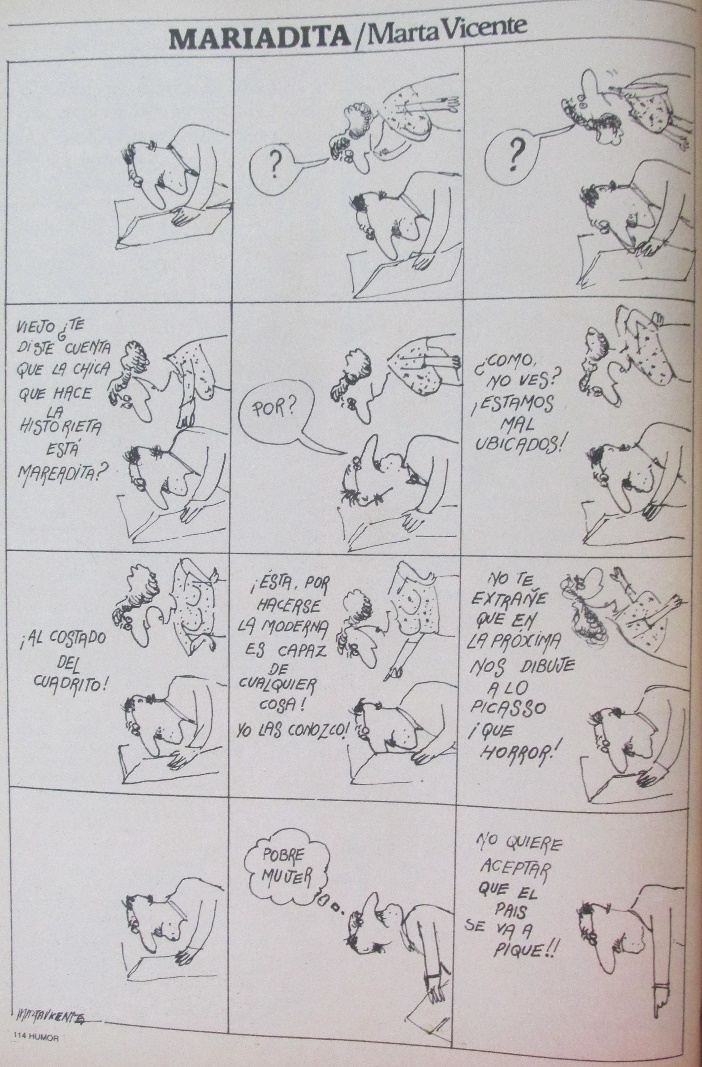 MARIADITA/Marta Vicente
?
?
VIEJO ¿TE
DISTE CUENTA
QUE LA CHICA
QUE HACE
LA
HISTORIETA
ESTÁ
MAREADITA?
POR?
¿COMO,
NO VES?
¡ESTAMOS
MAL
UBICADOS!
¡AL COSTADO
DEL
CUADRITO!
¡ÉSTA, POR
HACERSE
LA MODERNA
ES CAPAZ
DE
CUALQUIER
COSA!
YO LAS CONOZCO!
NO TE
EXTRAÑE
QUE EN
LA PRÓXIMA
NOS DIBUJE
A LO
PICASSO
¡QUE
HORROR!
POBRE
MUJER
NO QUIERE
ACEPTAR
QUE EL
PAIS
SE VA A
PIQUE!!
MARTA VICENTE
114 HUMOR